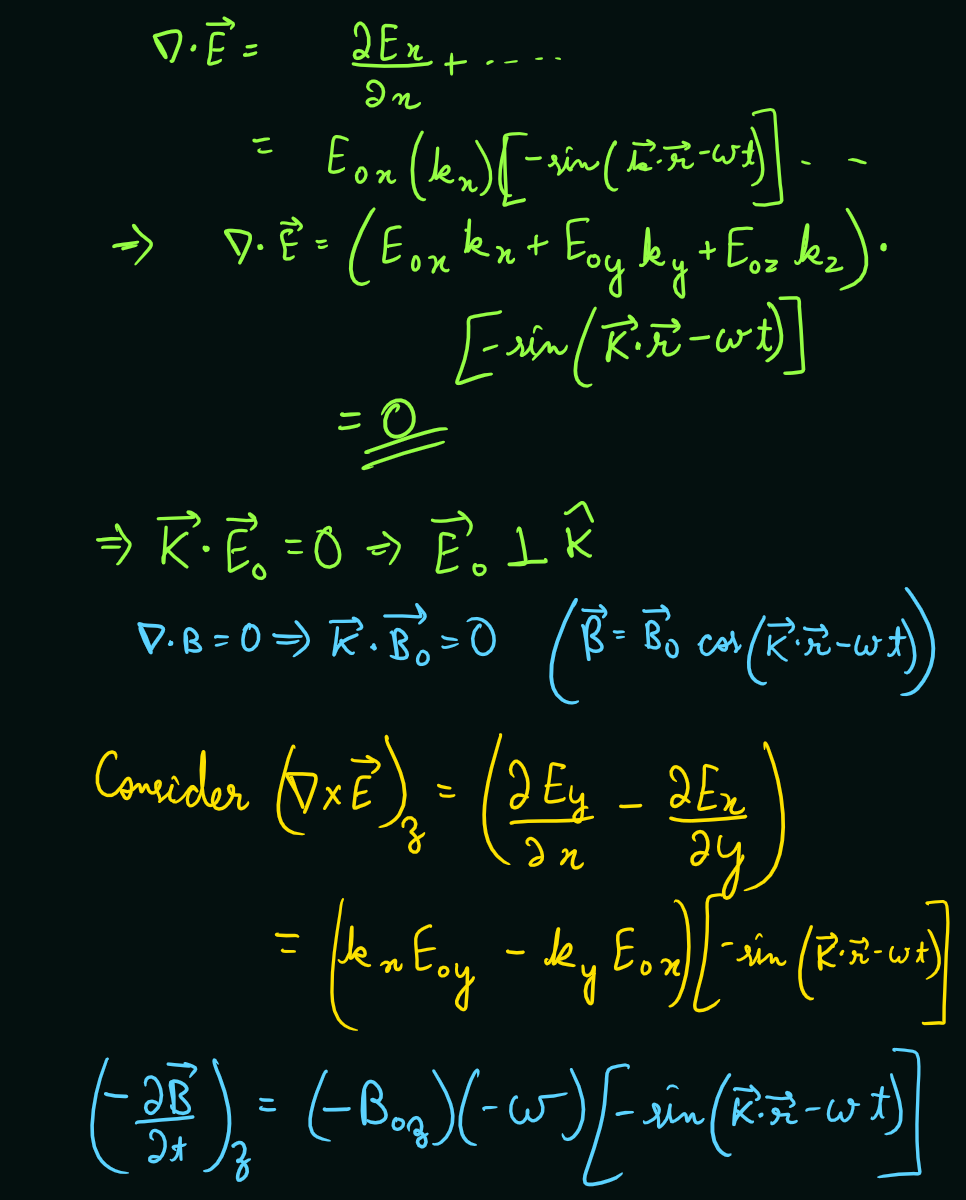 ∇·E⃗ = ∂Ex/∂x + .....
= E₀x (kx)[-sin(k⃗·r⃗-ωt)] . . -
⇒ ∇·E⃗ = (E₀x kx + E₀y ky + E₀z kz).
[-sin(K⃗·r⃗-ωt)]
= 0
⇒ K⃗·E⃗₀ = 0 ⇒ E⃗₀ ⊥ K̂
∇·B = 0 ⇒ K⃗·B⃗₀ = 0 (B⃗ = B⃗₀ cos(K⃗·r⃗-ωt))
Consider (∇×E⃗)z = (∂Ey/∂x - ∂Ex/∂y)
= (kx E₀y - ky E₀x)[-sin(K⃗·r⃗-ωt)]
(-∂B⃗/∂t)z = (-B₀z)(-ω)[-sin(K⃗·r⃗-ωt)]